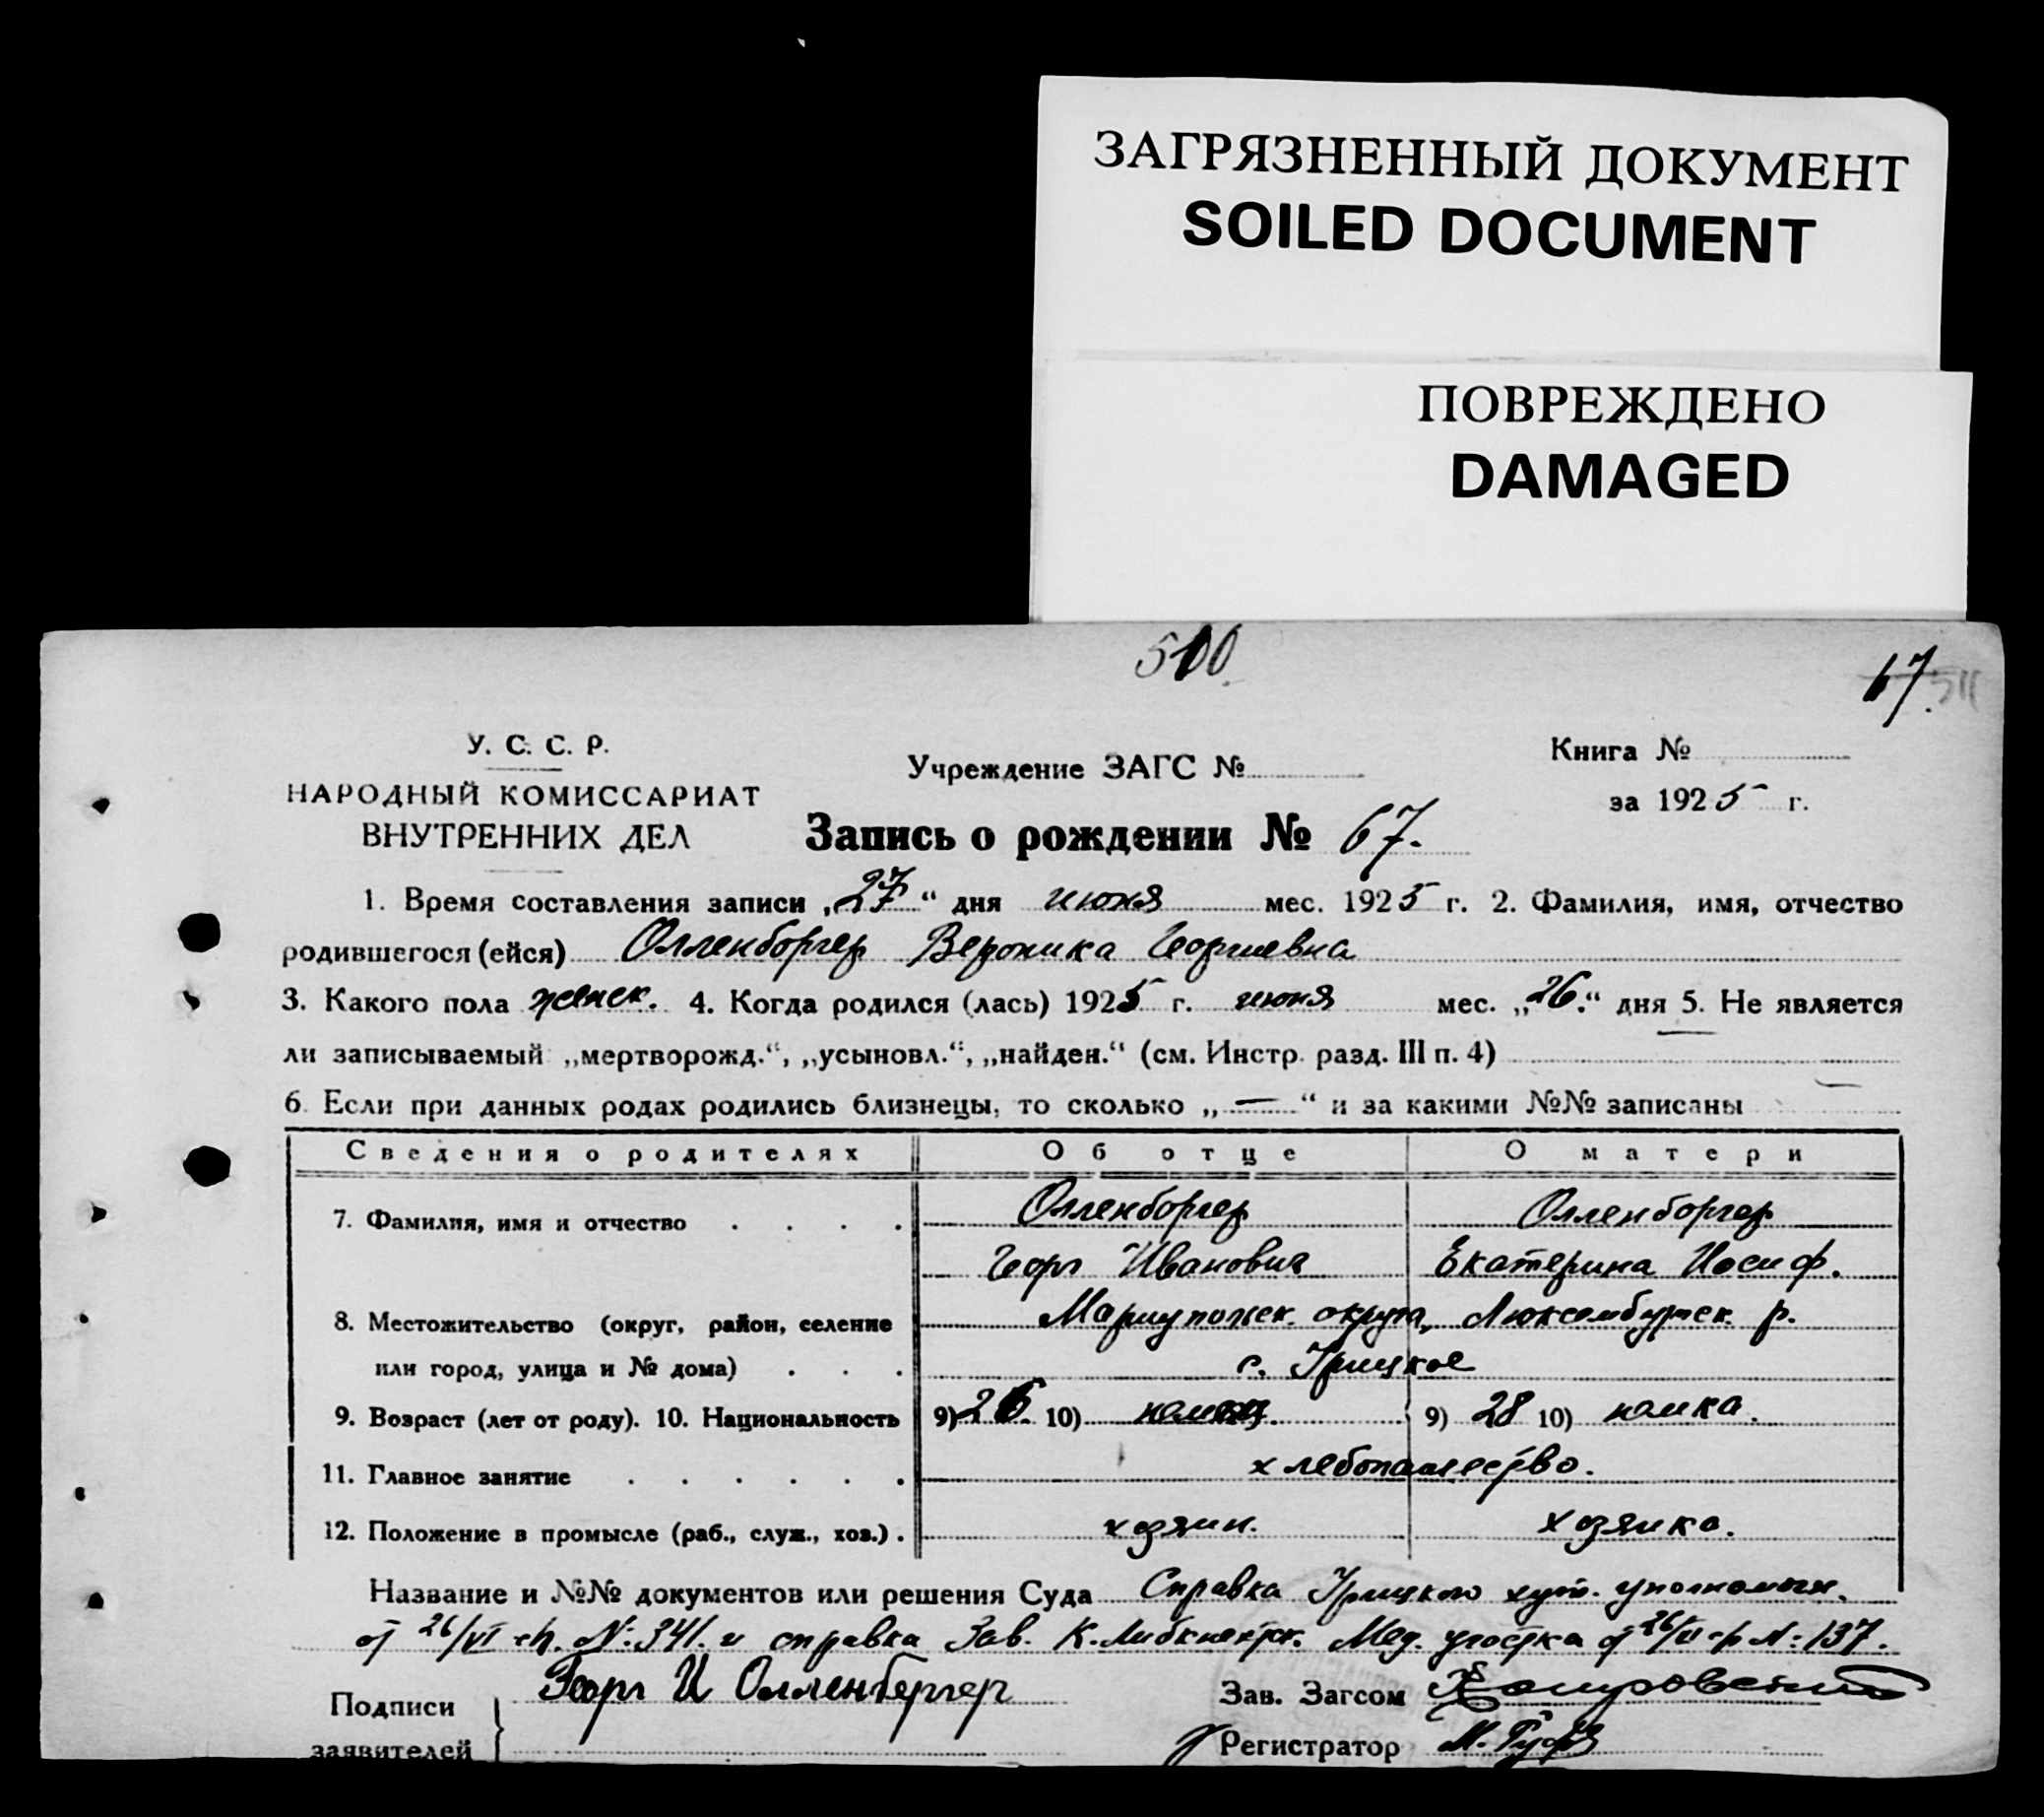 ЗАГРЯЗНЕННЫЙ ДОКУМЕНТ
SOILED DOCUMENT
ПОВРЕЖДЕНО
DAMAGED
500
67. 511
У. С. С. Р.
НАРОДНЫЙ КОМИССАРИАТ
ВНУТРЕННИХ ДЕЛ
Учреждение ЗАГС №
Книга №
за 1925 г.
Запись о рождении № 67.
1. Время составления записи „27“ дня июня мес. 1925 г. 2. Фамилия, имя, отчество
родившегося (ейся) Олленборгер Вероника Георгиевна
3. Какого пола женск. 4. Когда родился (лась) 1925 г. июня мес. „26.“ дня 5. Не является
ли записываемый „мертворожд.“, „усыновл.“, „найден.“ (см. Инстр. разд. III п. 4) —
6. Если при данных родах родились близнецы, то сколько „—“ и за какими №№ записаны —
Сведения о родителях Об отце О матери
7. Фамилия, имя и отчество . . . . Олленборгер Олленборгер
Георг Иванович Екатерина Иосиф.
8. Местожительство (округ, район, селение Мариупольск. округа, Люксембургск. р.
или город, улица и № дома) . . . с. Урицкое
9. Возраст (лет от роду). 10. Национальность 9) 26. 10) немец. 9) 28 10) немка.
11. Главное занятие . . . . . . хлебопашество.
12. Положение в промысле (раб., служ., хоз.) . хозяин. хозяйка.
Название и №№ документов или решения Суда Справка Урицкого хут. уполномоч.
от 26/VI с/г. №: 341. и справка Зав. К. Либкнехтск. Мед. участка от 26/VI с/г №: 137.
Подписи
заявителей
Георг И Олленбергер
Зав. Загсом
Регистратор